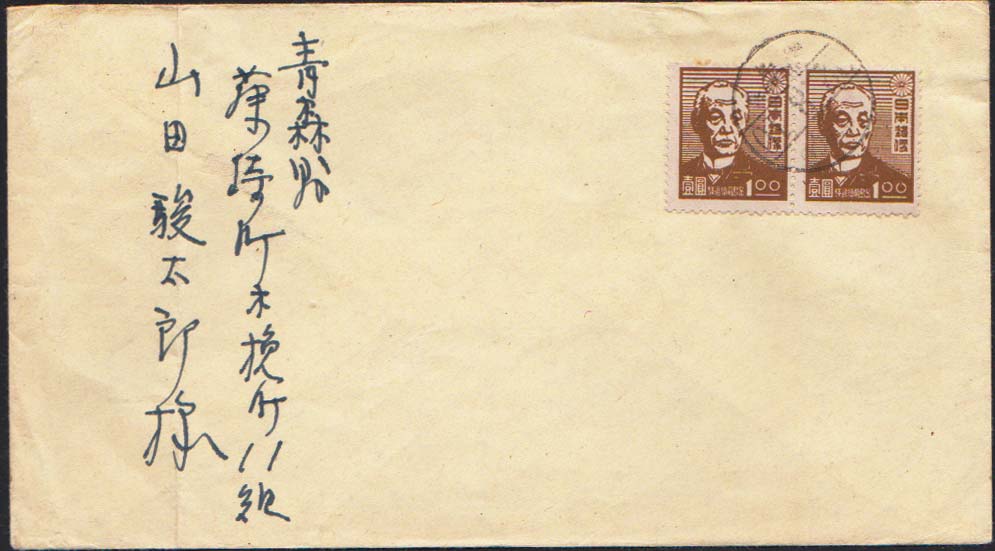 青森縣
藤崎町木挽町11組
山田駿太郎様
日本郵便
壹圓
1.00
日本郵便
壹圓
1.00